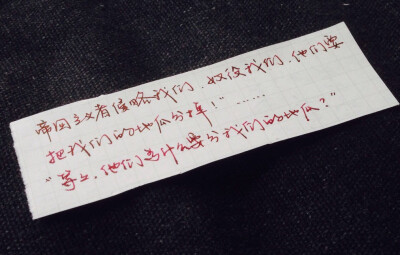 帝国主义者侵略我们、奴役我们、他们要
把我们的地瓜分掉！”……
“等等，他们为什么要分我们的地瓜？”